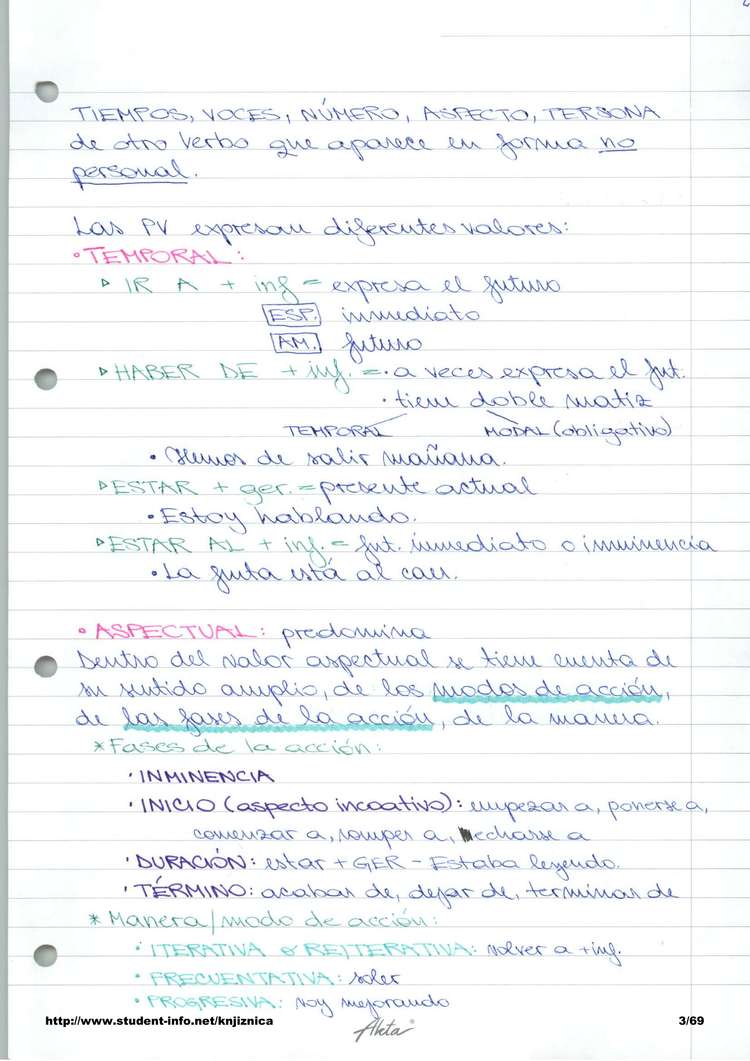 TIEMPOS, VOCES, NÚMERO, ASPECTO, TERSONA
de otro verbo que aparece en forma no
personal.
Las PV expresan diferentes valores:
• TEMPORAL:
▹ IR A + inf = expresa el futuro
ESP. inmediato
AM. futuro
▹ HABER DE + inf. = • a veces expresa el fut.
• tiene doble matiz
TEMPORAL MODAL (obligativo)
• Hemos de salir mañana.
▹ ESTAR + ger. = presente actual
• Estoy hablando.
▹ ESTAR AL + inf. = fut. inmediato o inminencia
• La fruta está al caer.
• ASPECTUAL: predomina
Dentro del valor aspectual se tiene cuenta de
su sentido amplio, de los modos de acción,
de las fases de la acción, de la manera.
* Fases de la acción:
• INMINENCIA
• INICIO (aspecto incoativo): empezar a, ponerse a,
comenzar a, romper a, echarse a
• DURACIÓN: estar + GER - Estaba leyendo.
• TÉRMINO: acabar de, dejar de, terminar de
* Manera/modo de acción:
• ITERATIVA o RE)ITERATIVA: volver a + inf.
• FRECUENTATIVA: soler
• PROGRESIVA: voy mejorando
http://www.student-info.net/knjiznica 3/69
Akta